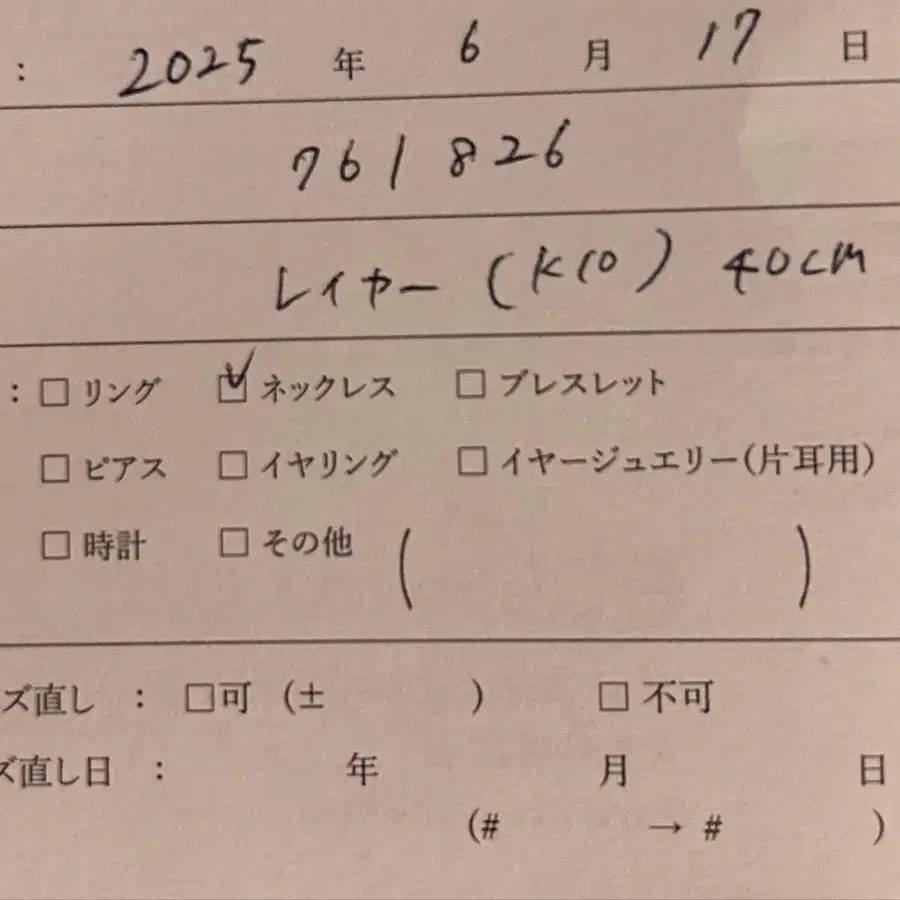 : 2025 年 6 月 17 日
761826
レイヤー (K10) 40cm
: □ リング ☑ ネックレス □ ブレスレット
□ ピアス □ イヤリング □ イヤージュエリー(片耳用)
□ 時計 □ その他 ( )
ズ直し : □可 (± ) □ 不可
ズ直し日 : 年 月 日
(# → # )